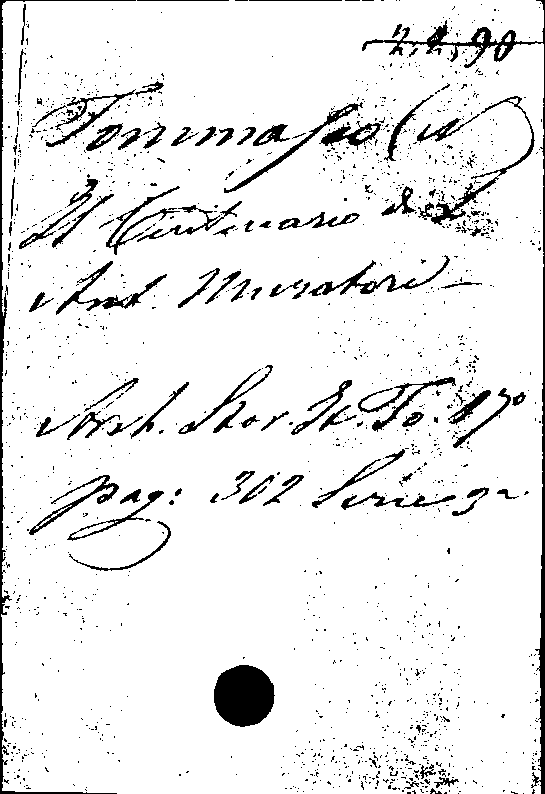 2.2.90
Tommaseo (N)
Il Centenario di L.
Ant. Muratori
Arch. Stor. It. To. 17º
pag: 302 Serie 3ª